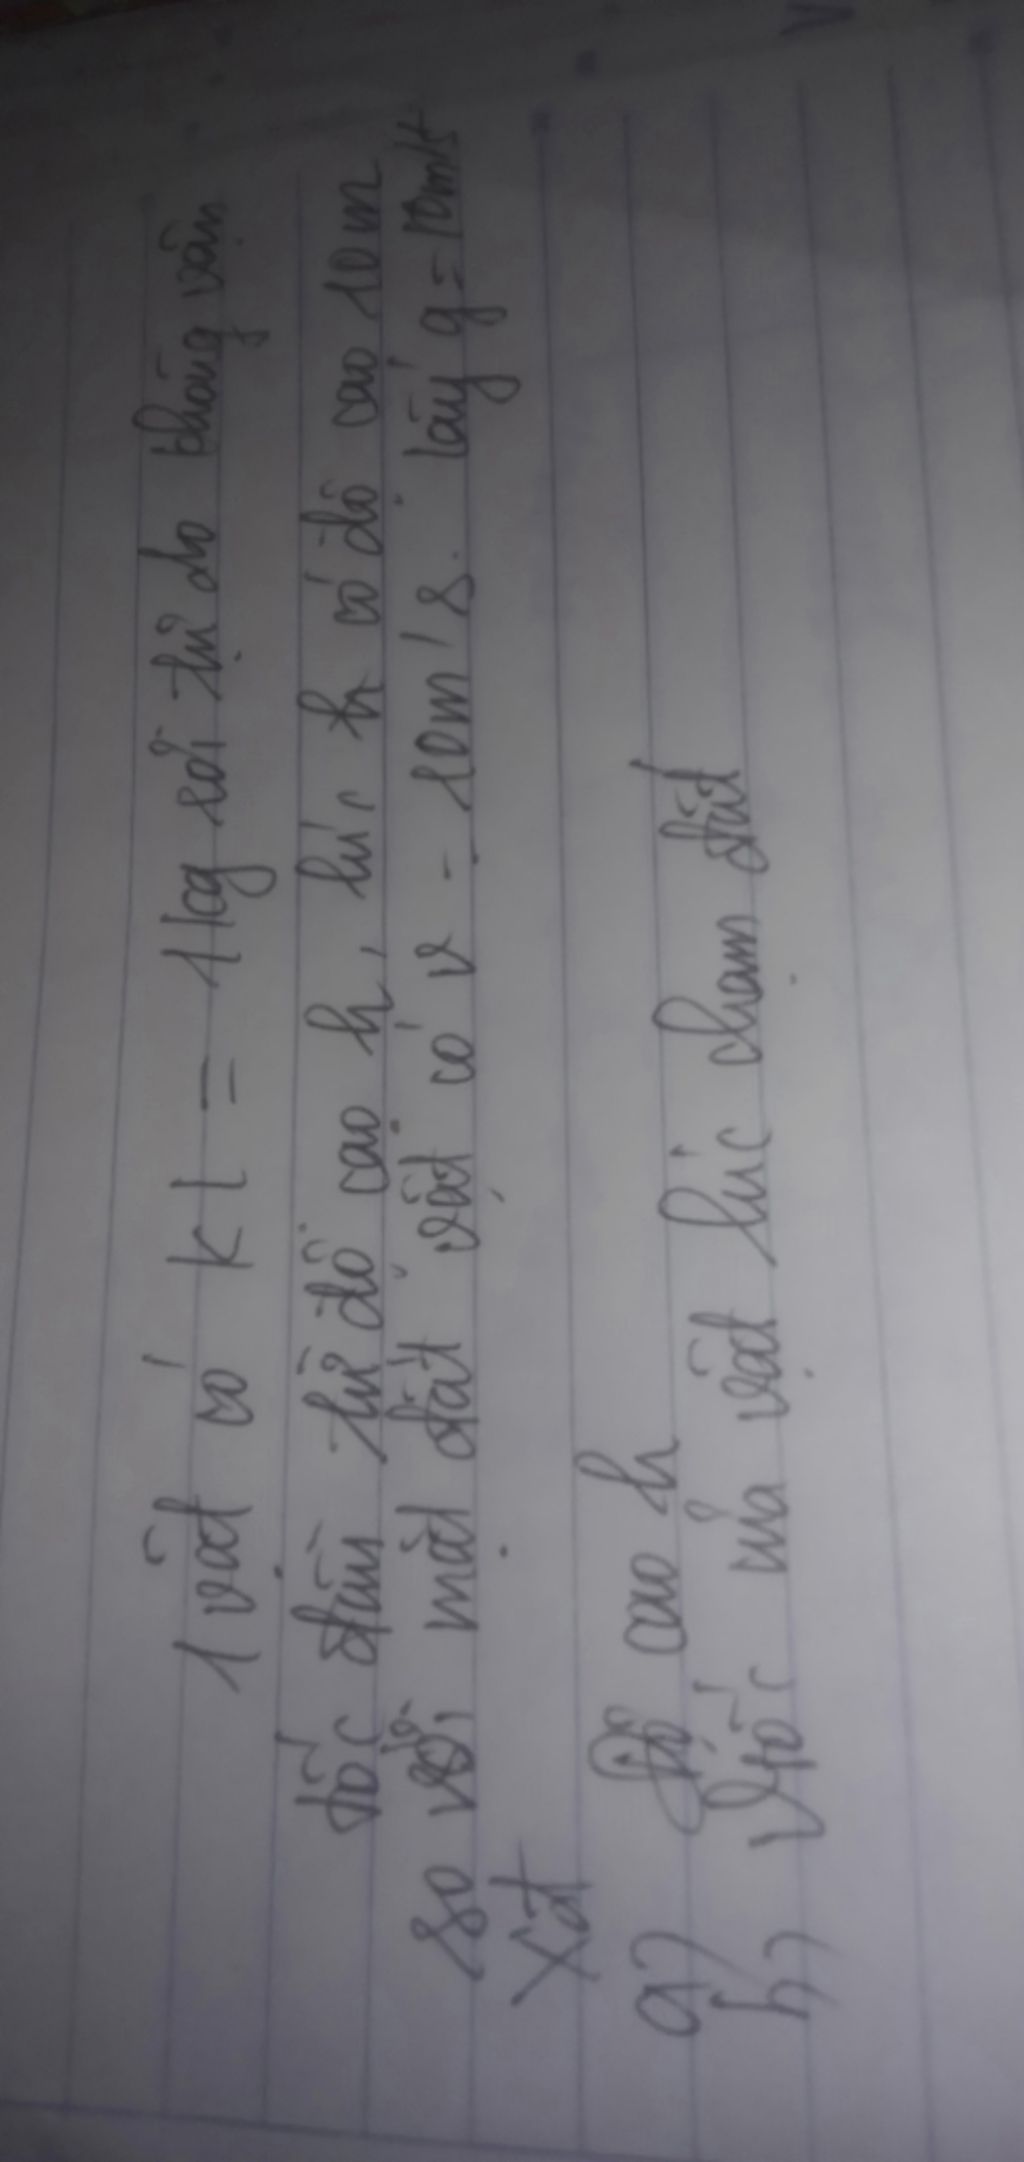 1 vật có kl = 1kg rơi tự do không vận
tốc đầu từ độ cao h, lúc h có độ cao 10m
so với mặt đất vật có v = 10m/s. lấy g = 10m/s
Xđ
a) Độ cao h
b) Vtốc của vật lúc chạm đất